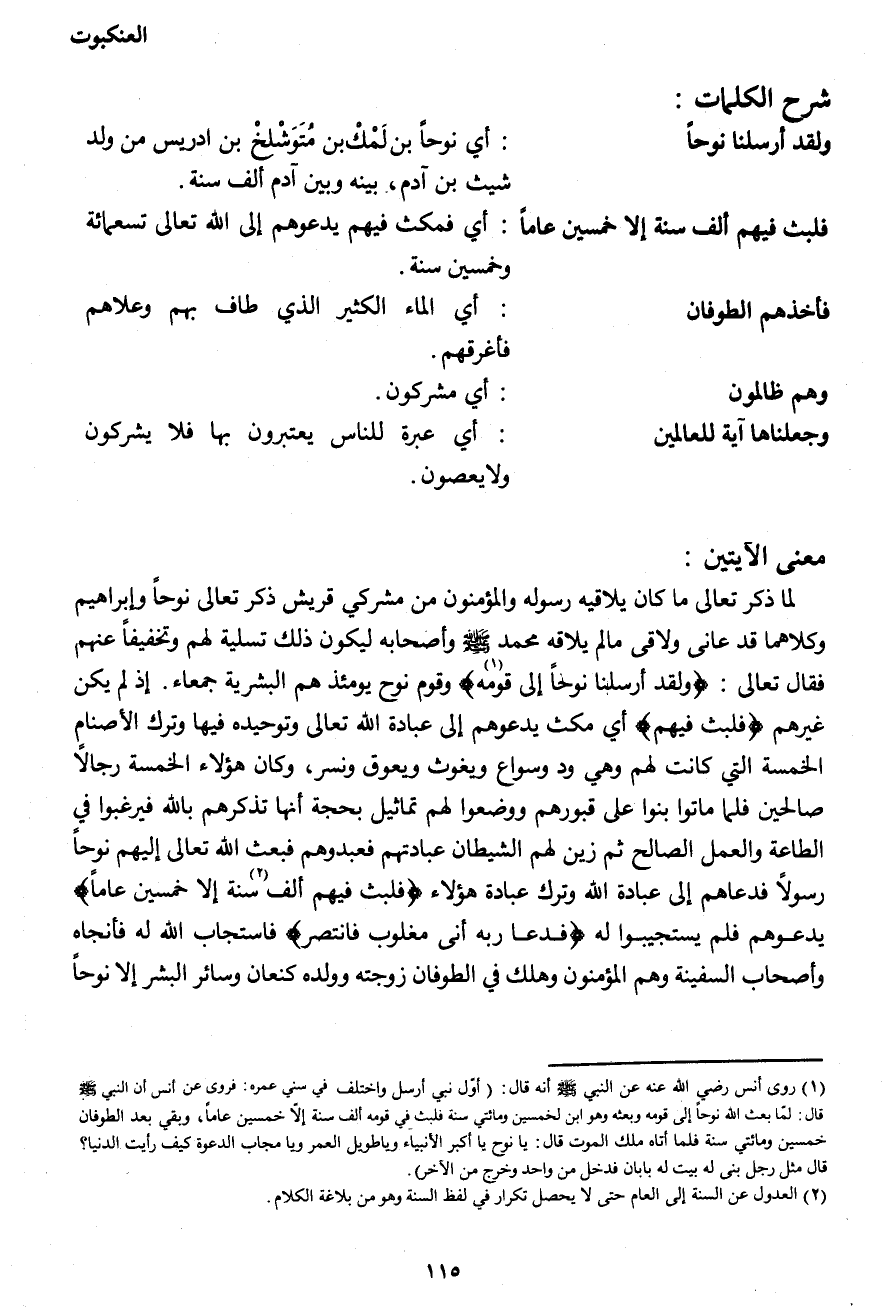 العنكبوت
شرح الكلمات :
ولقد أرسلنا نوحاً : أي نوحاً بن لَمْكْ بن مُتَوَشْلِخْ بن ادريس من ولد
شيث بن آدم، بينه وبين آدم ألف سنة .
فلبث فيهم ألف سنة إلا خمسين عاماً : أي فمكث فيهم يدعوهم إلى الله تعالى تسعمائة
وخمسين سنة .
فأخذهم الطوفان : أي الماء الكثير الذي طاف بهم وعلاهم
فأغرقهم .
وهم ظالمون : أي مشركون .
وجعلناها آية للعالمين : أي عبرة للناس يعتبرون بها فلا يشركون
ولايعصون .
معنى الآيتين :
لما ذكر تعالى ما كان يلاقيه رسوله والمؤمنون من مشركي قريش ذكر تعالى نوحاً وإبراهيم
وكلاهما قد عانى ولاقى مالم يلاقه محمد ﷺ وأصحابه ليكون ذلك تسلية لهم وتخفيفاً عنهم
فقال تعالى : ﴿ولقد أرسلنا نوحاً إلى قومه﴾(١) وقوم نوح يومئذ هم البشرية جمعاء . إذ لم يكن
غيرهم ﴿فلبث فيهم﴾ أي مكث يدعوهم إلى عبادة الله تعالى وتوحيده فيها وترك الأصنام
الخمسة التي كانت لهم وهي ود وسواع ويغوث ويعوق ونسر، وكان هؤلاء الخمسة رجالاً
صالحين فلما ماتوا بنوا على قبورهم ووضعوا لهم تماثيل بحجة أنها تذكرهم بالله فيرغبوا في
الطاعة والعمل الصالح ثم زين لهم الشيطان عبادتهم فعبدوهم فبعث الله تعالى إليهم نوحاً
رسولاً فدعاهم إلى عبادة الله وترك عبادة هؤلاء ﴿فلبث فيهم ألف(٢) سنة إلا خمسين عاماً﴾
يدعـوهم فلم يستجيبـوا له ﴿فـدعـا ربه أنى مغلوب فانتصر﴾ فاستجاب الله له فأنجاه
وأصحاب السفينة وهم المؤمنون وهلك في الطوفان زوجته وولده كنعان وسائر البشر إلا نوحاً
(١) روى أنس رضي الله عنه عن النبي ﷺ أنه قال: ( أوّل نبي أرسل واختلف في سني عمره: فروى عن أنس أن النبي ﷺ
قال: لمّا بعث الله نوحاً إلى قومه وبعثه وهو ابن لخمسين ومائتي سنة فلبث في قومه ألف سنة إلّا خمسين عاماً، وبقي بعد الطوفان
خمسين ومائتي سنة فلما أتاه ملك الموت قال: يا نوح يا أكبر الأنبياء وياطويل العمر ويا مجاب الدعوة كيف رأيت الدنيا؟
قال مثل رجل بنى له بيت له بابان فدخل من واحد وخرج من الآخر).
(٢) العدول عن السنة إلى العام حتى لا يحصل تكرار في لفظ السنة وهو من بلاغة الكلام.
١١٥